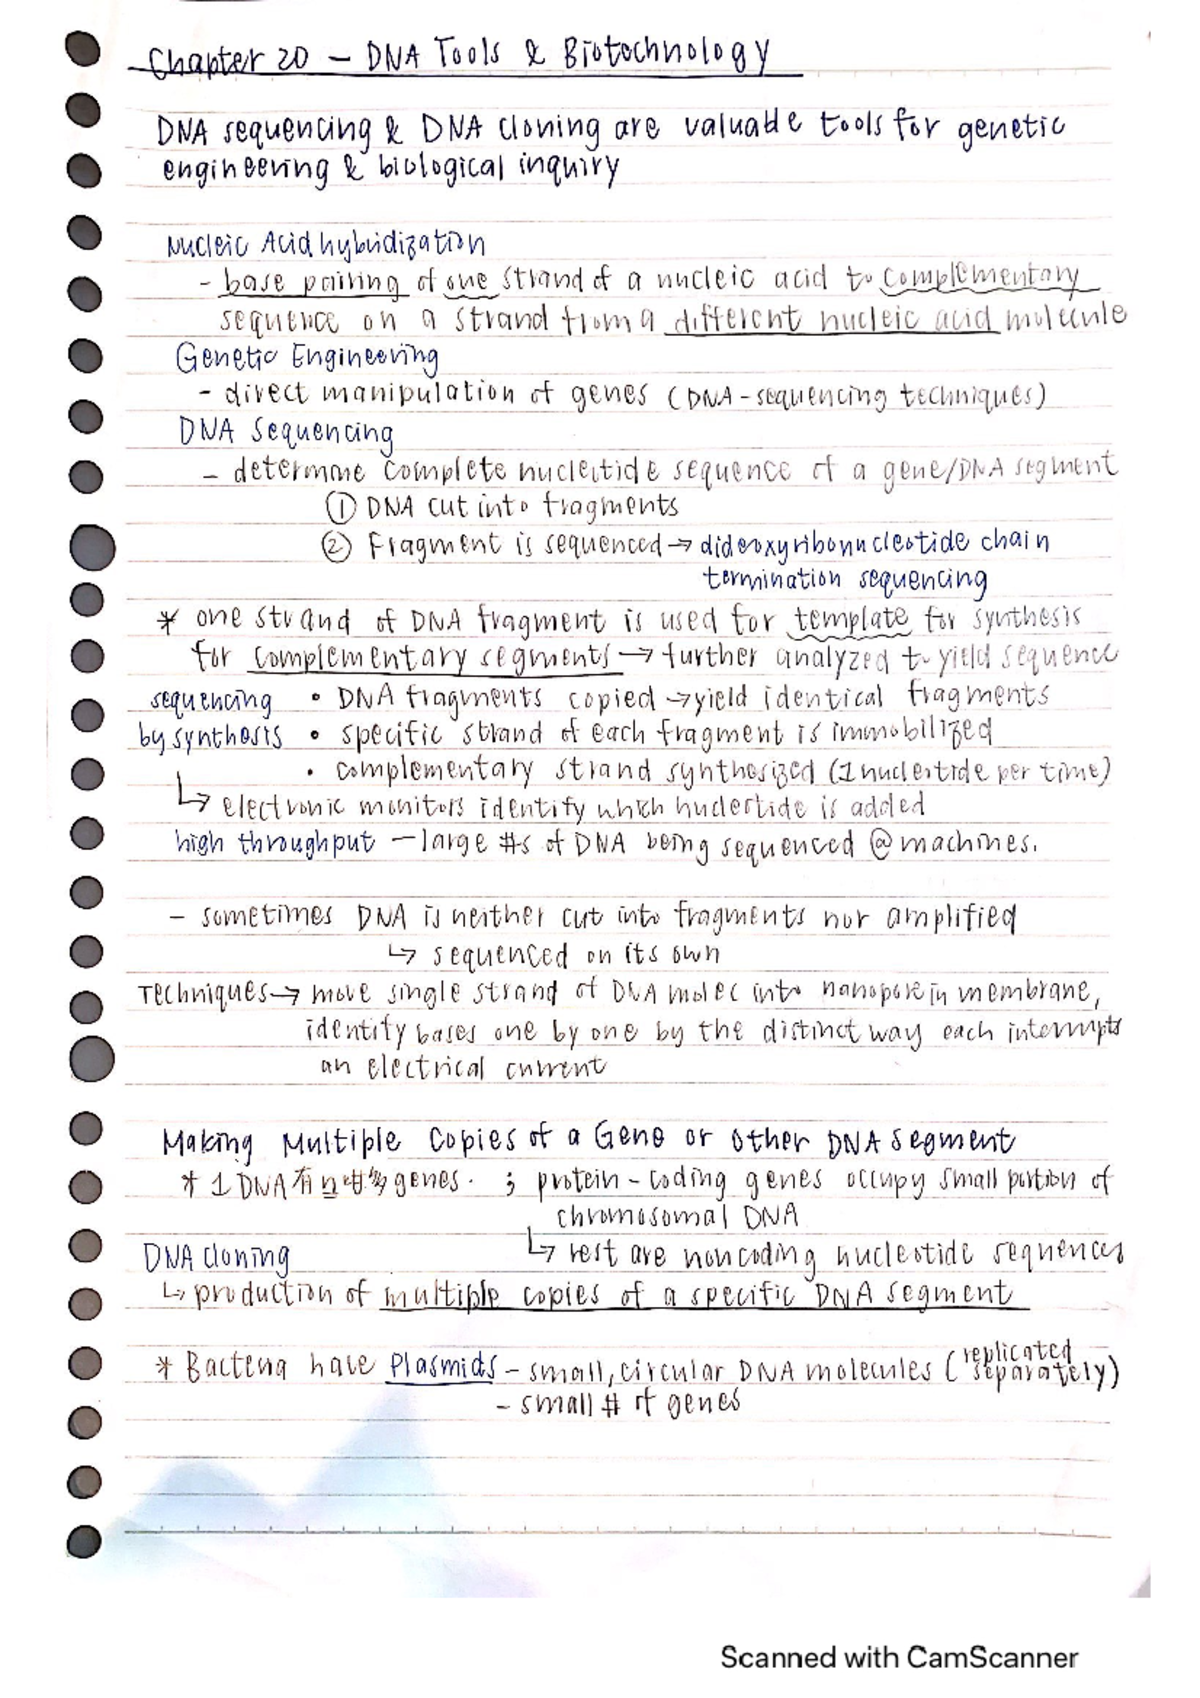 Chapter 20 – DNA Tools & Biotechnology
DNA sequencing & DNA cloning are valuable tools for genetic
engineering & biological inquiry
Nucleic Acid hybridization
- base pairing of one strand of a nucleic acid to complementary
sequence on a strand from a different nucleic acid molecule
Genetic Engineering
- direct manipulation of genes (DNA-sequencing techniques)
DNA Sequencing
- determine complete nucleotide sequence of a gene/DNA segment
① DNA cut into fragments
② Fragment is sequenced → dideoxyribonucleotide chain
termination sequencing
* one strand of DNA fragment is used for template for synthesis
for complementary segments → further analyzed to yield sequence
sequencing • DNA fragments copied → yield identical fragments
by synthesis • specific strand of each fragment is immobilized
• complementary strand synthesized (1 nucleotide per time)
↳ electronic monitors identify which nucleotide is added
high throughput – large #s of DNA being sequenced @ machines.
- sometimes DNA is neither cut into fragments nor amplified
↳ sequenced on its own
Techniques → move single strand of DNA molec into nanopore in membrane,
identity bases one by one by the distinct way each interrupts
an electrical current
Making Multiple Copies of a Gene or Other DNA Segment
* 1 DNA有 genes. ; protein-coding genes occupy small portion of
chromosomal DNA
DNA cloning ↳ rest are noncoding nucleotide sequences
↳ production of multiple copies of a specific DNA segment
* Bacteria have Plasmids – small, circular DNA molecules (replicated separately)
- small # of genes
Scanned with CamScanner